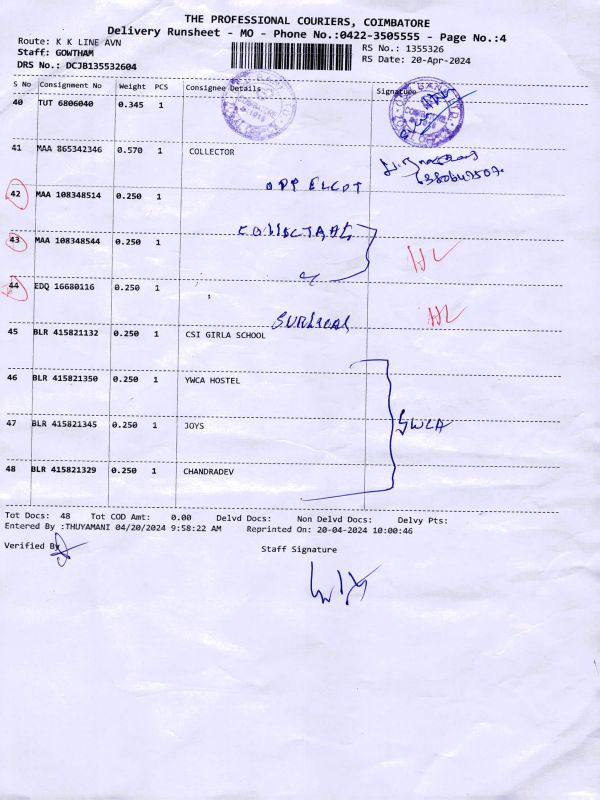 THE PROFESSIONAL COURIERS, COIMBATORE
Delivery Runsheet - MO - Phone No.:0422-3505555 - Page No.:4
Route: K K LINE AVN
Staff: GOWTHAM
DRS No.: DCJB135532604
RS No.: 1355326
RS Date: 20-Apr-2024
S No Consignment No Weight PCS Consignee Details Signature
40 TUT 6806040 0.345 1
41 MAA 865342346 0.570 1 COLLECTOR
42 MAA 108348514 0.250 1 OPP ELCOT
43 MAA 108348544 0.250 1
44 EDQ 16680116 0.250 1
SURGICAL
45 BLR 415821132 0.250 1 CSI GIRLA SCHOOL
46 BLR 415821350 0.250 1 YWCA HOSTEL
47 BLR 415821345 0.250 1 JOYS
YWCA
48 BLR 415821329 0.250 1 CHANDRADEV
Tot Docs: 48 Tot COD Amt: 0.00 Delvd Docs: Non Delvd Docs: Delvy Pts:
Entered By :THUYAMANI 04/20/2024 9:58:22 AM Reprinted On: 20-04-2024 10:00:46
Verified By
Staff Signature